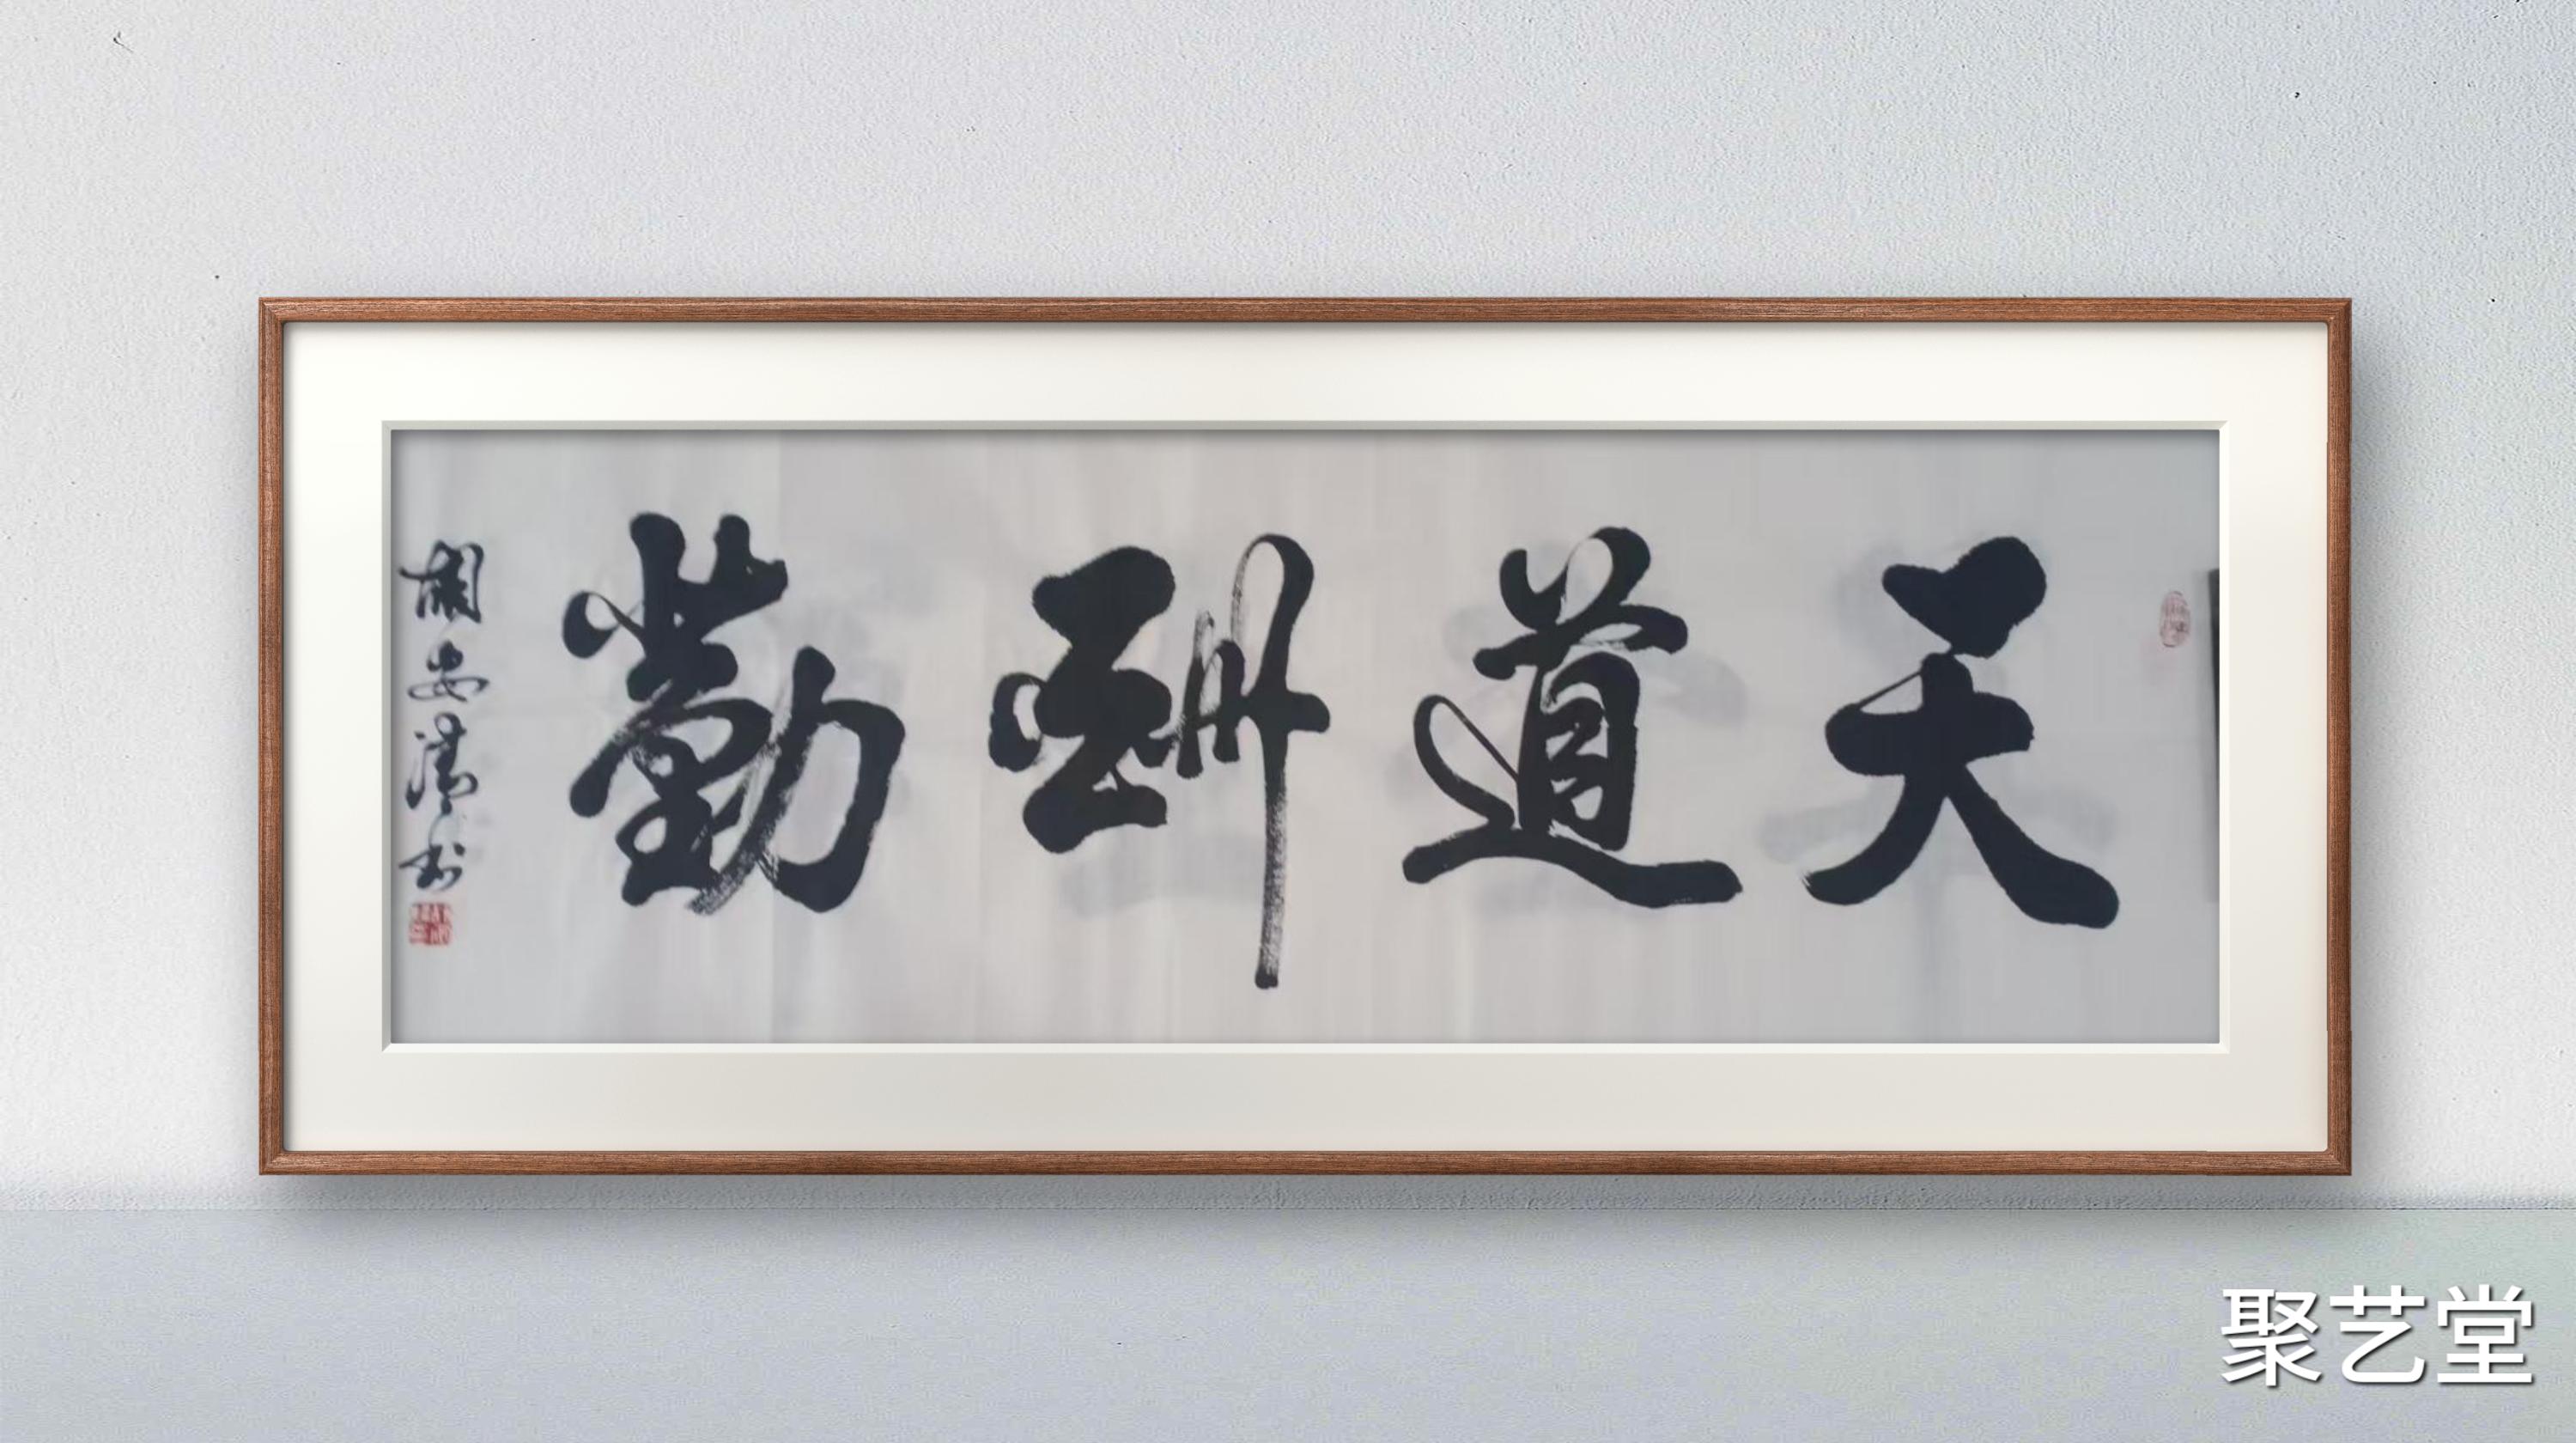 天道酬勤
安清书
聚艺堂